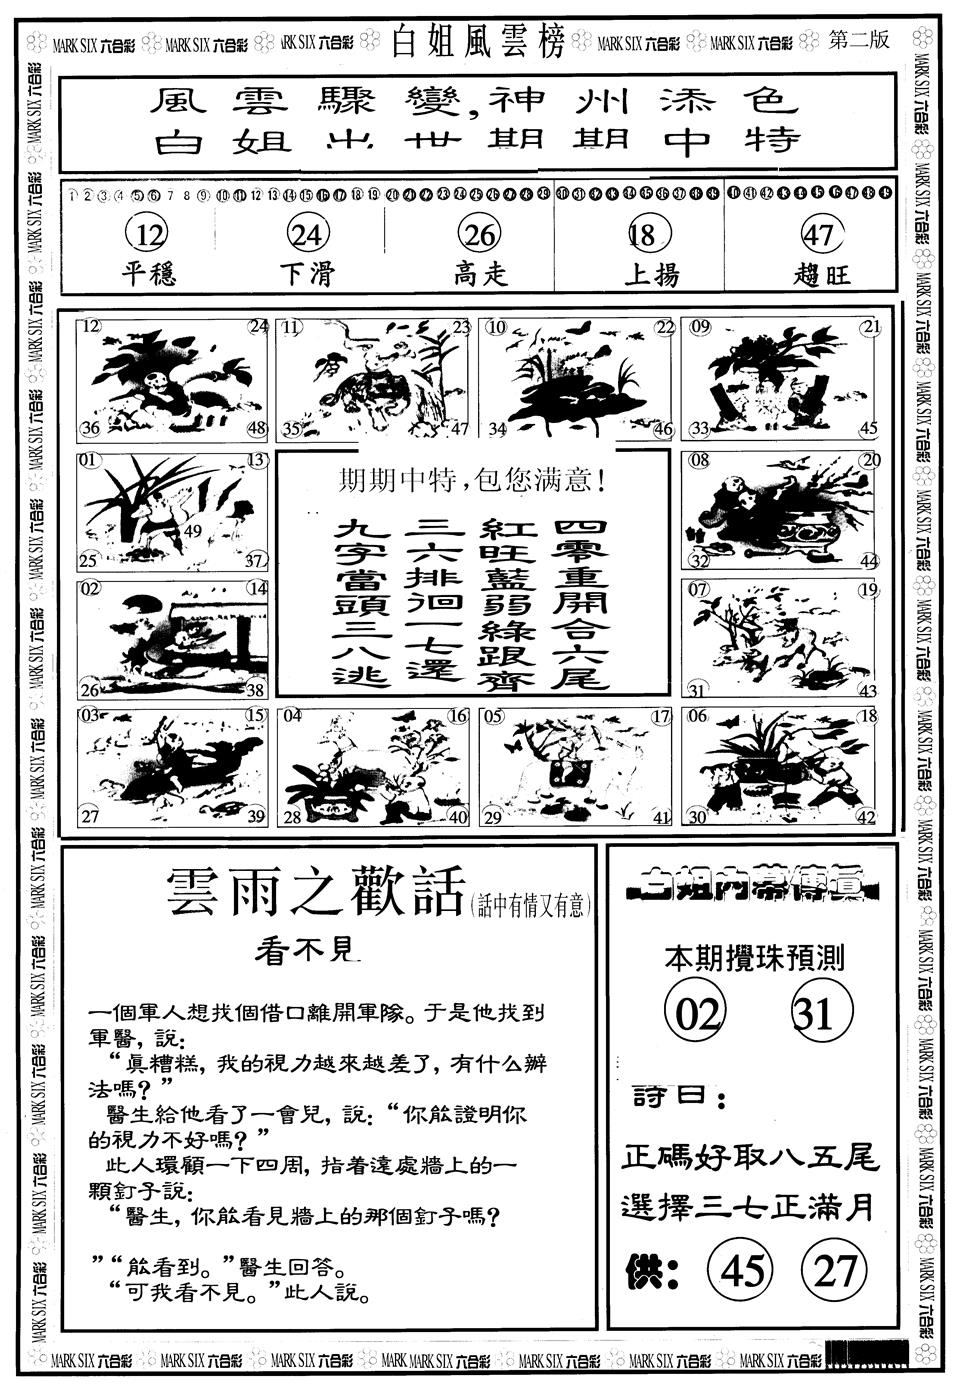 MARK SIX 六合彩 MARK SIX 六合彩 ARK SIX 六合彩 白姐風雲榜 MARK SIX 六合彩 MARK SIX 六合彩 第二版
風雲驟變,神州添色
白姐出世期期中特
1 2 3 4 5 6 7 8 9 10 11 12 13 14 15 16 17 18 19 20 21 22 23 24 25 26 27 28 29 30 31 32 33 34 35 36 37 38 39 40 41 42 43 44 45 46 47 48 49
12 24 26 18 47
平穩 下滑 高走 上揚 趨旺
12 24 11 23 10 22 09 21
36 48 35 47 34 46 33 45
01 13 08 20
49
25 37 32 44
02 14 07 19
26 38 31 43
03 15 04 16 05 17 06 18
27 39 28 40 29 41 30 42
期期中特,包您满意!
四零重開合六尾
紅旺藍弱綠跟齊
三六排徊一七還
九字當頭三八逃
雲雨之歡話(話中有情又有意)
看不見
一個軍人想找個借口離開軍隊。于是他找到
軍醫,說:
“真糟糕,我的視力越來越差了,有什么辦
法嗎?”
醫生給他看了一會兒,說:“你能證明你
的視力不好嗎?”
此人環顧一下四周,指着遠處牆上的一
顆釘子說:
“醫生,你能看見牆上的那個釘子嗎?
”“能看到。”醫生回答。
“可我看不見。”此人說。
白姐內幕傳真
本期攪珠預測
02 31
詩曰:
正碼好取八五尾
選擇三七正滿月
供: 45 27
MARK SIX 六合彩 MARK SIX 六合彩 MARK SIX 六合彩 MARK MARK SIX 六合彩 MARK SIX 六合彩 MARK SIX 六合彩 MARK SIX 六合彩